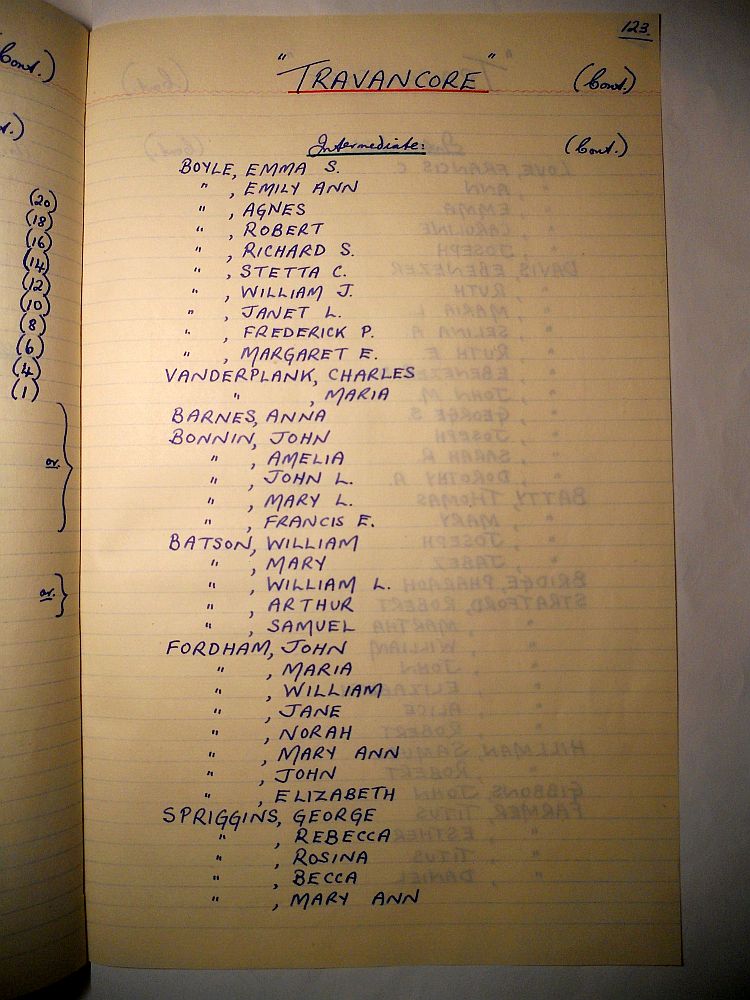 Cont.)
.)
(20)
(18)
(16)
(14)
(12)
(10)
(8)
(6)
(4)
(1)
or.
or.
123.
"TRAVANCORE" (Cont.)
Intermediate: (Cont.)
BOYLE, EMMA S.
" , EMILY ANN
" , AGNES
" , ROBERT
" , RICHARD S.
" , STETTA C.
" , WILLIAM J.
" , JANET L.
" , FREDERICK P.
" , MARGARET E.
VANDERPLANK, CHARLES
" , MARIA
BARNES, ANNA
BONNIN, JOHN
" , AMELIA
" , JOHN L.
" , MARY L.
" , FRANCIS E.
BATSON, WILLIAM
" , MARY
" , WILLIAM L.
" , ARTHUR
" , SAMUEL
FORDHAM, JOHN
" , MARIA
" , WILLIAM
" , JANE
" , NORAH
" , MARY ANN
" , JOHN
" , ELIZABETH
SPRIGGINS, GEORGE
" , REBECCA
" , ROSINA
" , BECCA
" , MARY ANN